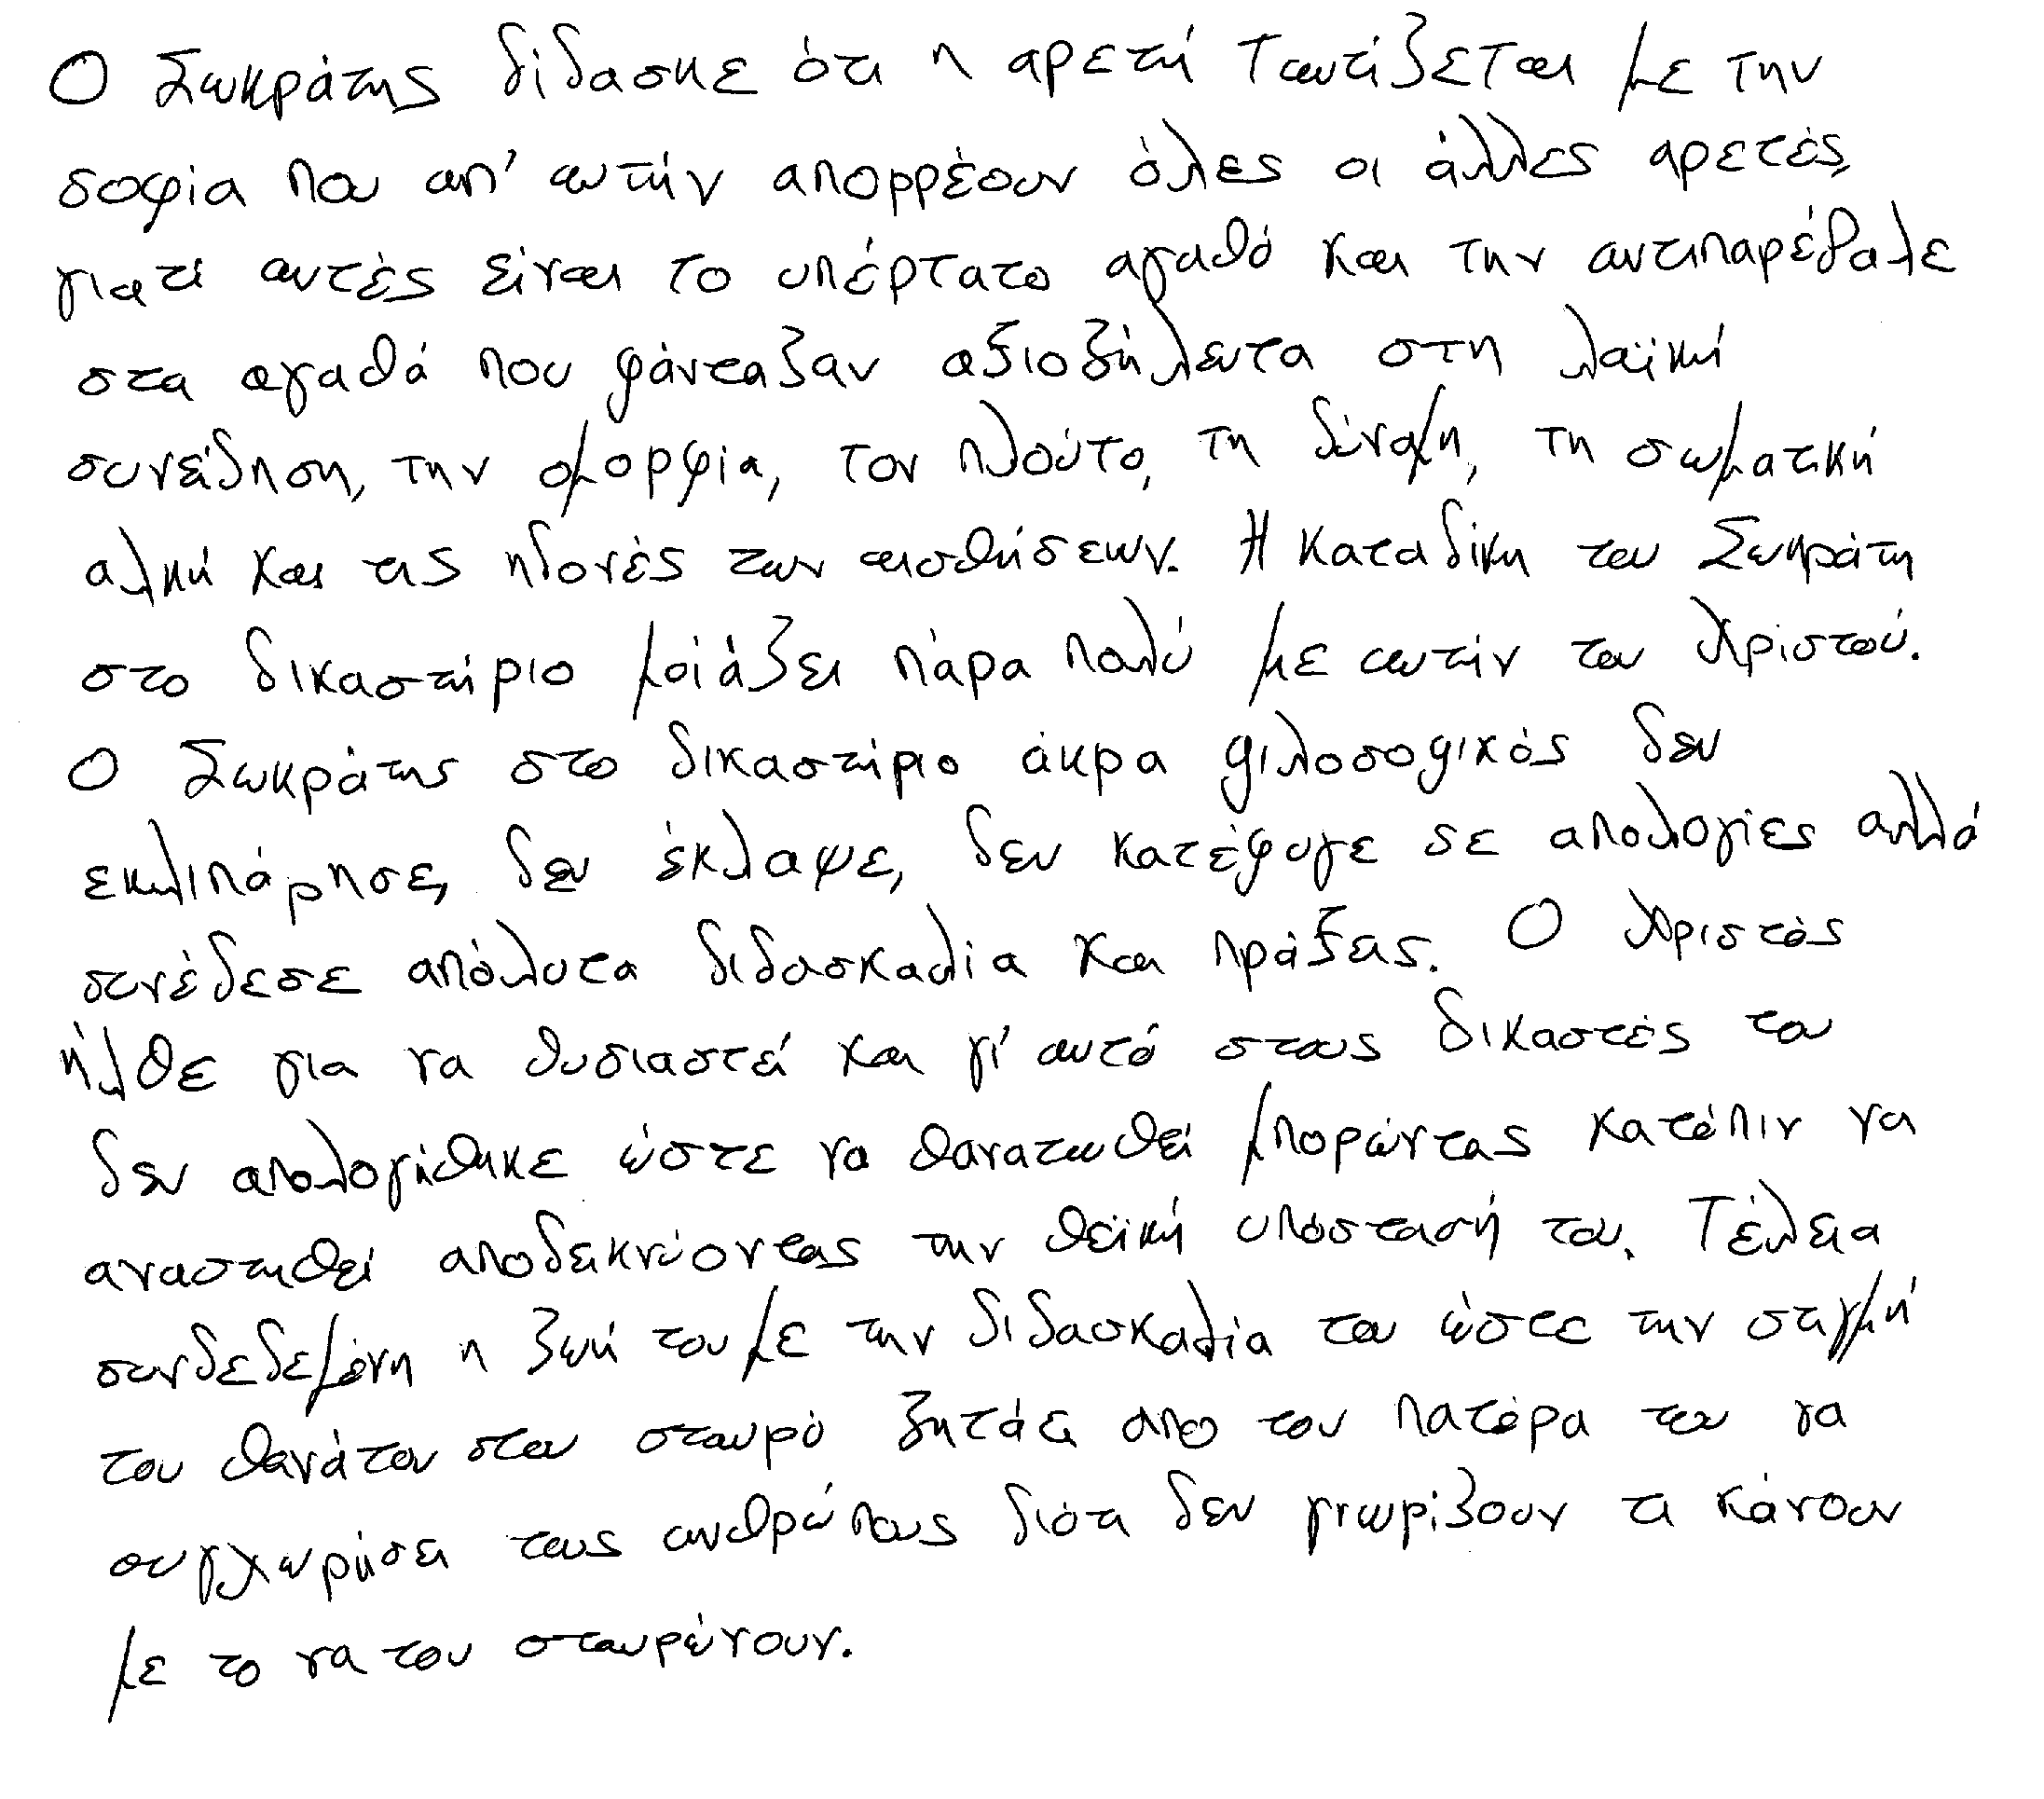 Ο Σωκράτης δίδασκε ότι η αρετή ταυτίζεται με την
σοφία που απ' αυτήν απορρέουν όλες οι άλλες αρετές,
γιατί αυτές είναι το υπέρτατο αγαθό και την αντιπαρέβαλε
στα αγαθά που φάνταζαν αξιοζήλευτα στη λαϊκή
συνείδηση, την ομορφία, τον πλούτο, τη δύναμη, τη σωματική
αλκή και τις ηδονές των αισθήσεων. Η καταδίκη του Σωκράτη
στο δικαστήριο μοιάζει πάρα πολύ με αυτήν του Χριστού.
Ο Σωκράτης στο δικαστήριο άκρα φιλοσοφικός δεν
εκλιπάρησε, δεν έκλαψε, δεν κατέφυγε σε απολογίες αλλά
συνέδεσε απόλυτα διδασκαλία και πράξεις. Ο Χριστός
ήλθε για να θυσιαστεί και γι' αυτό στους δικαστές του
δεν απολογήθηκε ώστε να θανατωθεί μπορώντας κατόπιν να
αναστηθεί αποδεικνύοντας την θεϊκή υπόστασή του. Τέλεια
συνδεδεμένη η ζωή του με την διδασκαλία του ώστε την στιγμή
του θανάτου στον σταυρό ζητάει απο τον πατέρα του να
συγχωρήσει τους ανθρώπους διότι δεν γνωρίζουν τι κάνουν
με το να τον σταυρώνουν.